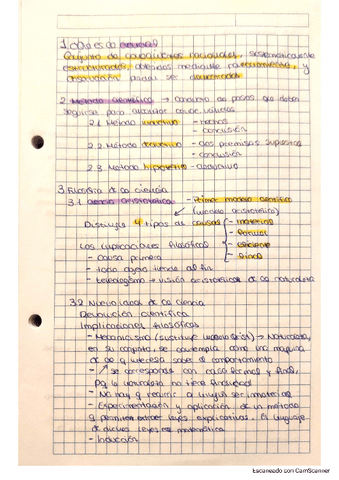 1. ¿Qué es la ciencia?
Conjunto de conocimientos racionales, sistemáticamente
estructurados, obtenidos mediante razonamiento y
observación para ser demostrados
2. Método científico → conjunto de pasos que deben
seguirse para alcanzar conoc. válidos
2.1 Método inductivo - hechos
- conclusión
2.2 Método deductivo - dos premisas supuestas
- conclusión
2.3 Método hipotético - deductivo
3 Filosofía de la ciencia
3.1 ciencia aristotélica - Primer modelo científico
(modelo aristotélico)
Distingue 4 tipos de causas - material
- formal
- eficiente
- final
Las implicaciones filosóficas
- causa primera
- todo objeto tiende al fin
- teleologismo → visión aristotélica de la naturaleza
3.2 Nueva idea de la ciencia
Revolución científica
Implicaciones filosóficas
- Mecanicismo (sustituye Arist) → Naturaleza,
en su conjunto, se contempla como una máquina
de la q interesa saber el comportamiento
- se corresponde con causa formal y final,
pq la naturaleza no tiene finalidad
- No hay q recurrir a inmateriales
- Experimentación y aplicación de un método
q permiten extraer leyes explicativas. El lenguaje
de dichas leyes es matemático
- Inducción
Escaneado con CamScanner